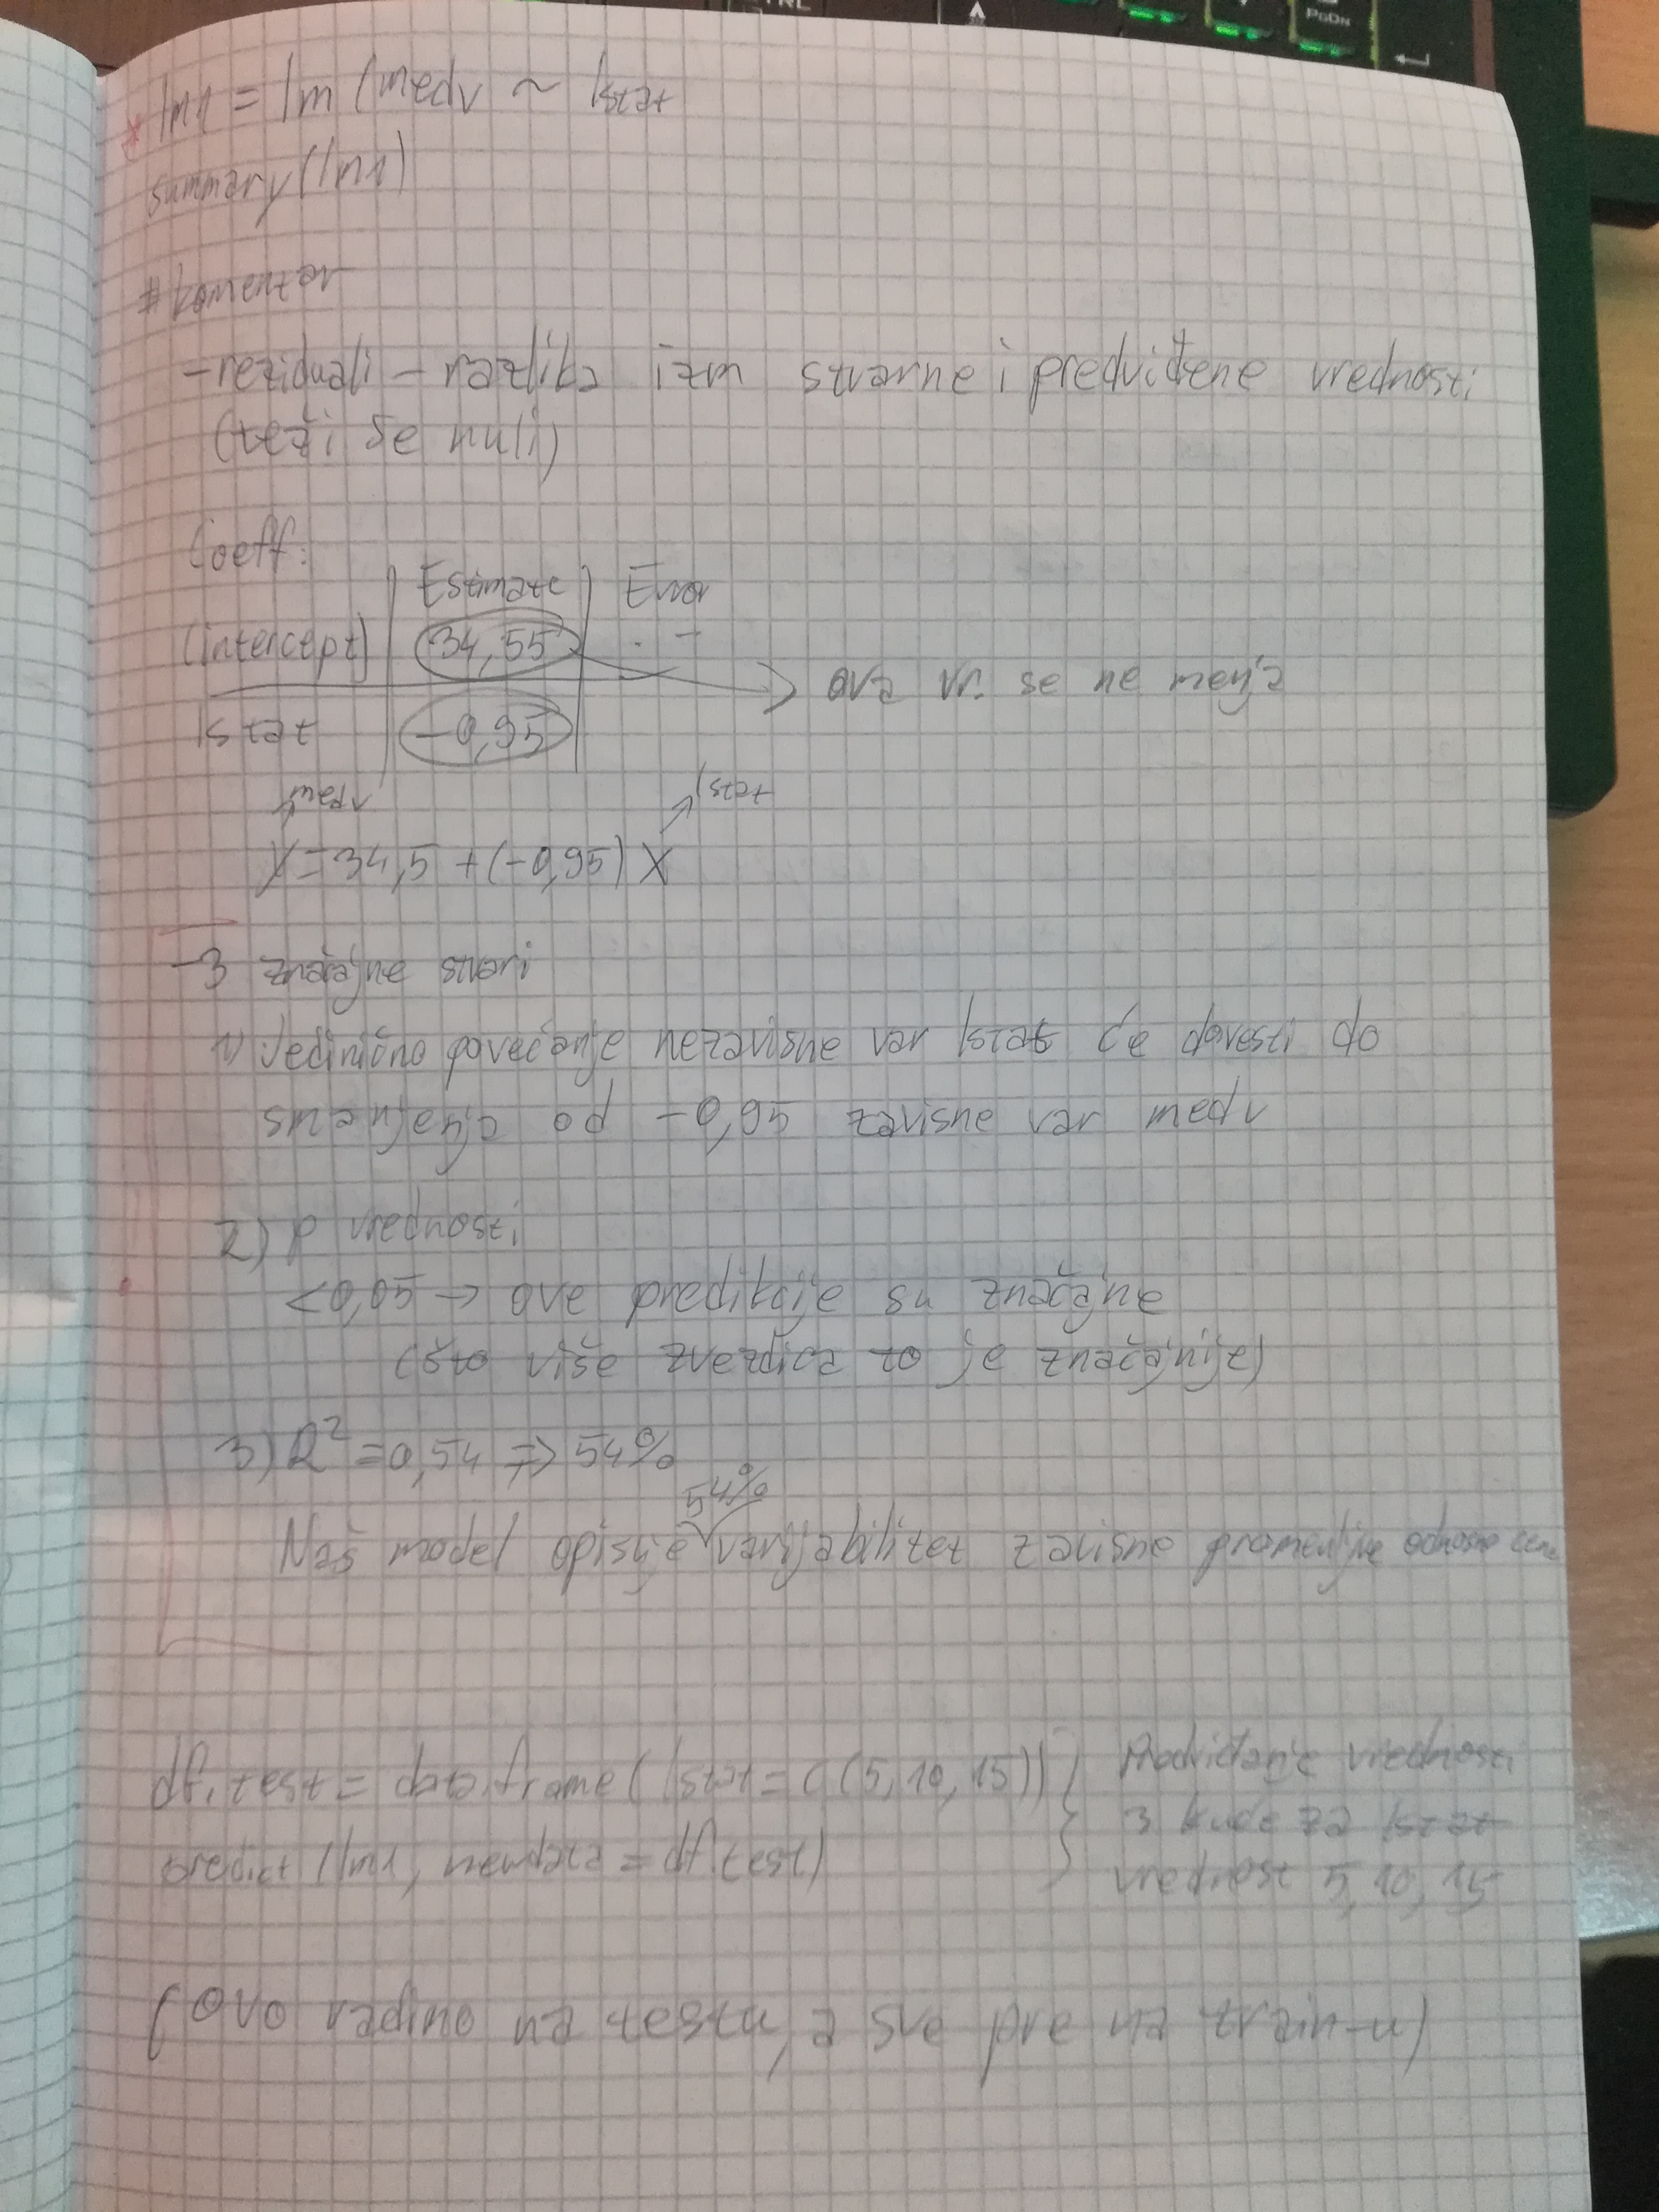 * lm1 = lm (medv ~ lstat
summary(lm1)
# komentar
- reziduali - razlika izm stvarne i predviđene vrednosti
(teži se nuli)
Coeff:
Estimate Error
(intercept) 34,55 . - → ova vr. se ne menja
lstat -0,95
medv lstat
Y=34,5 +(-0,95) X
- 3 značajne stvari
1) Jedinično povećanje nezavisne var lstat će dovesti do
smanjenja od -0,95 zavisne var medv
2) p vrednosti
<0,05 → ove predikcije su značajne
(što više zvezdica to je značajnija)
3) R² = 0,54 => 54%
54%
Naš model opisuje varijabilitet zavisne promenljive odnosno cene
df.test = data.frame ( lstat = c (5, 10, 15)) } Predviđanje vrednosti
3 kuće za lstat
predict (lm1, newdata = df.test) vrednost 5, 10, 15
(ovo radimo na testu, a sve pre na train-u)
PgDn